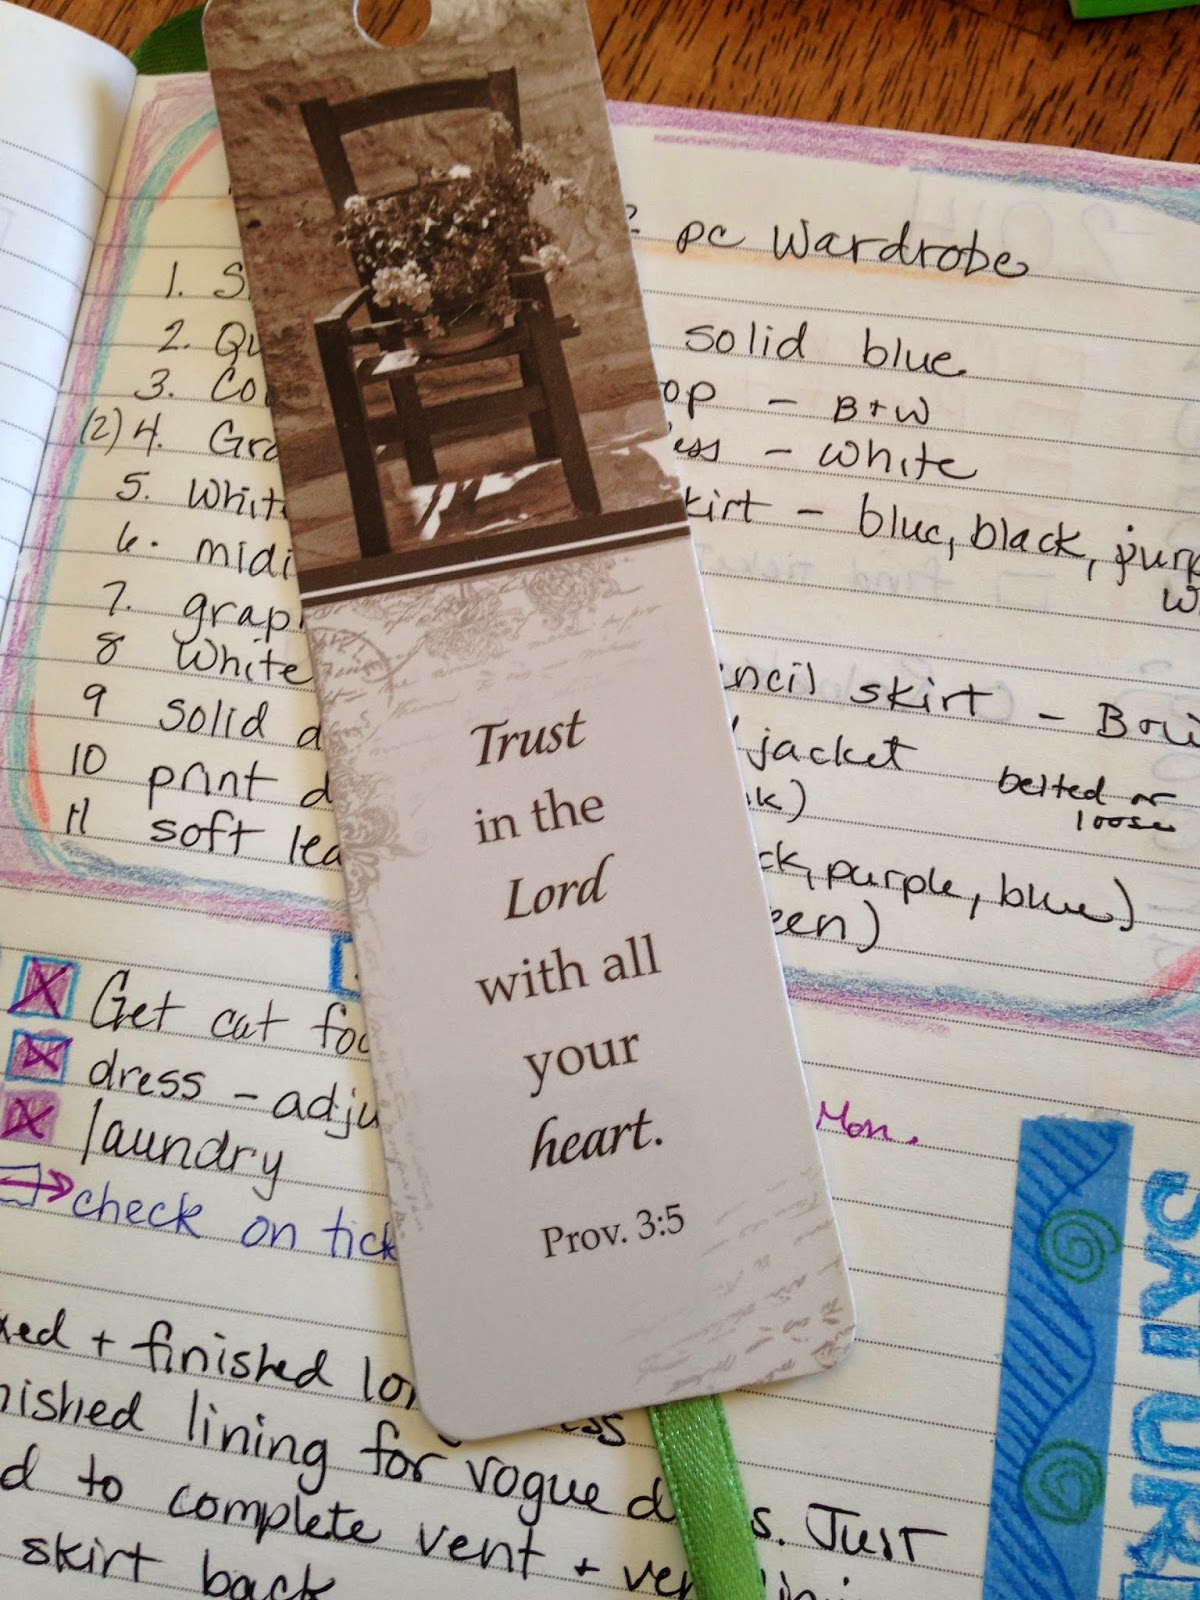 pc Wardrobe
1. S
2. Qu
solid blue
3. Co
op - B+W
(2) 4. Gra
ess - white
5. Whit
kirt - blue, black, purp
6. midi
W
7. grap
8 White
encil skirt - B
9 solid d
jacket
10 print d
k)
belted or
loose
11 soft lea
ck, purple, blue)
een)
Trust
in the
Lord
with all
your
heart.
Prov. 3:5
Get cat foo
dress - adju
Mon.
laundry
check on tick
xed + finished lo
ess
nished lining for vogue d
s. Just
d to complete vent + ve
skirt back
SATUR